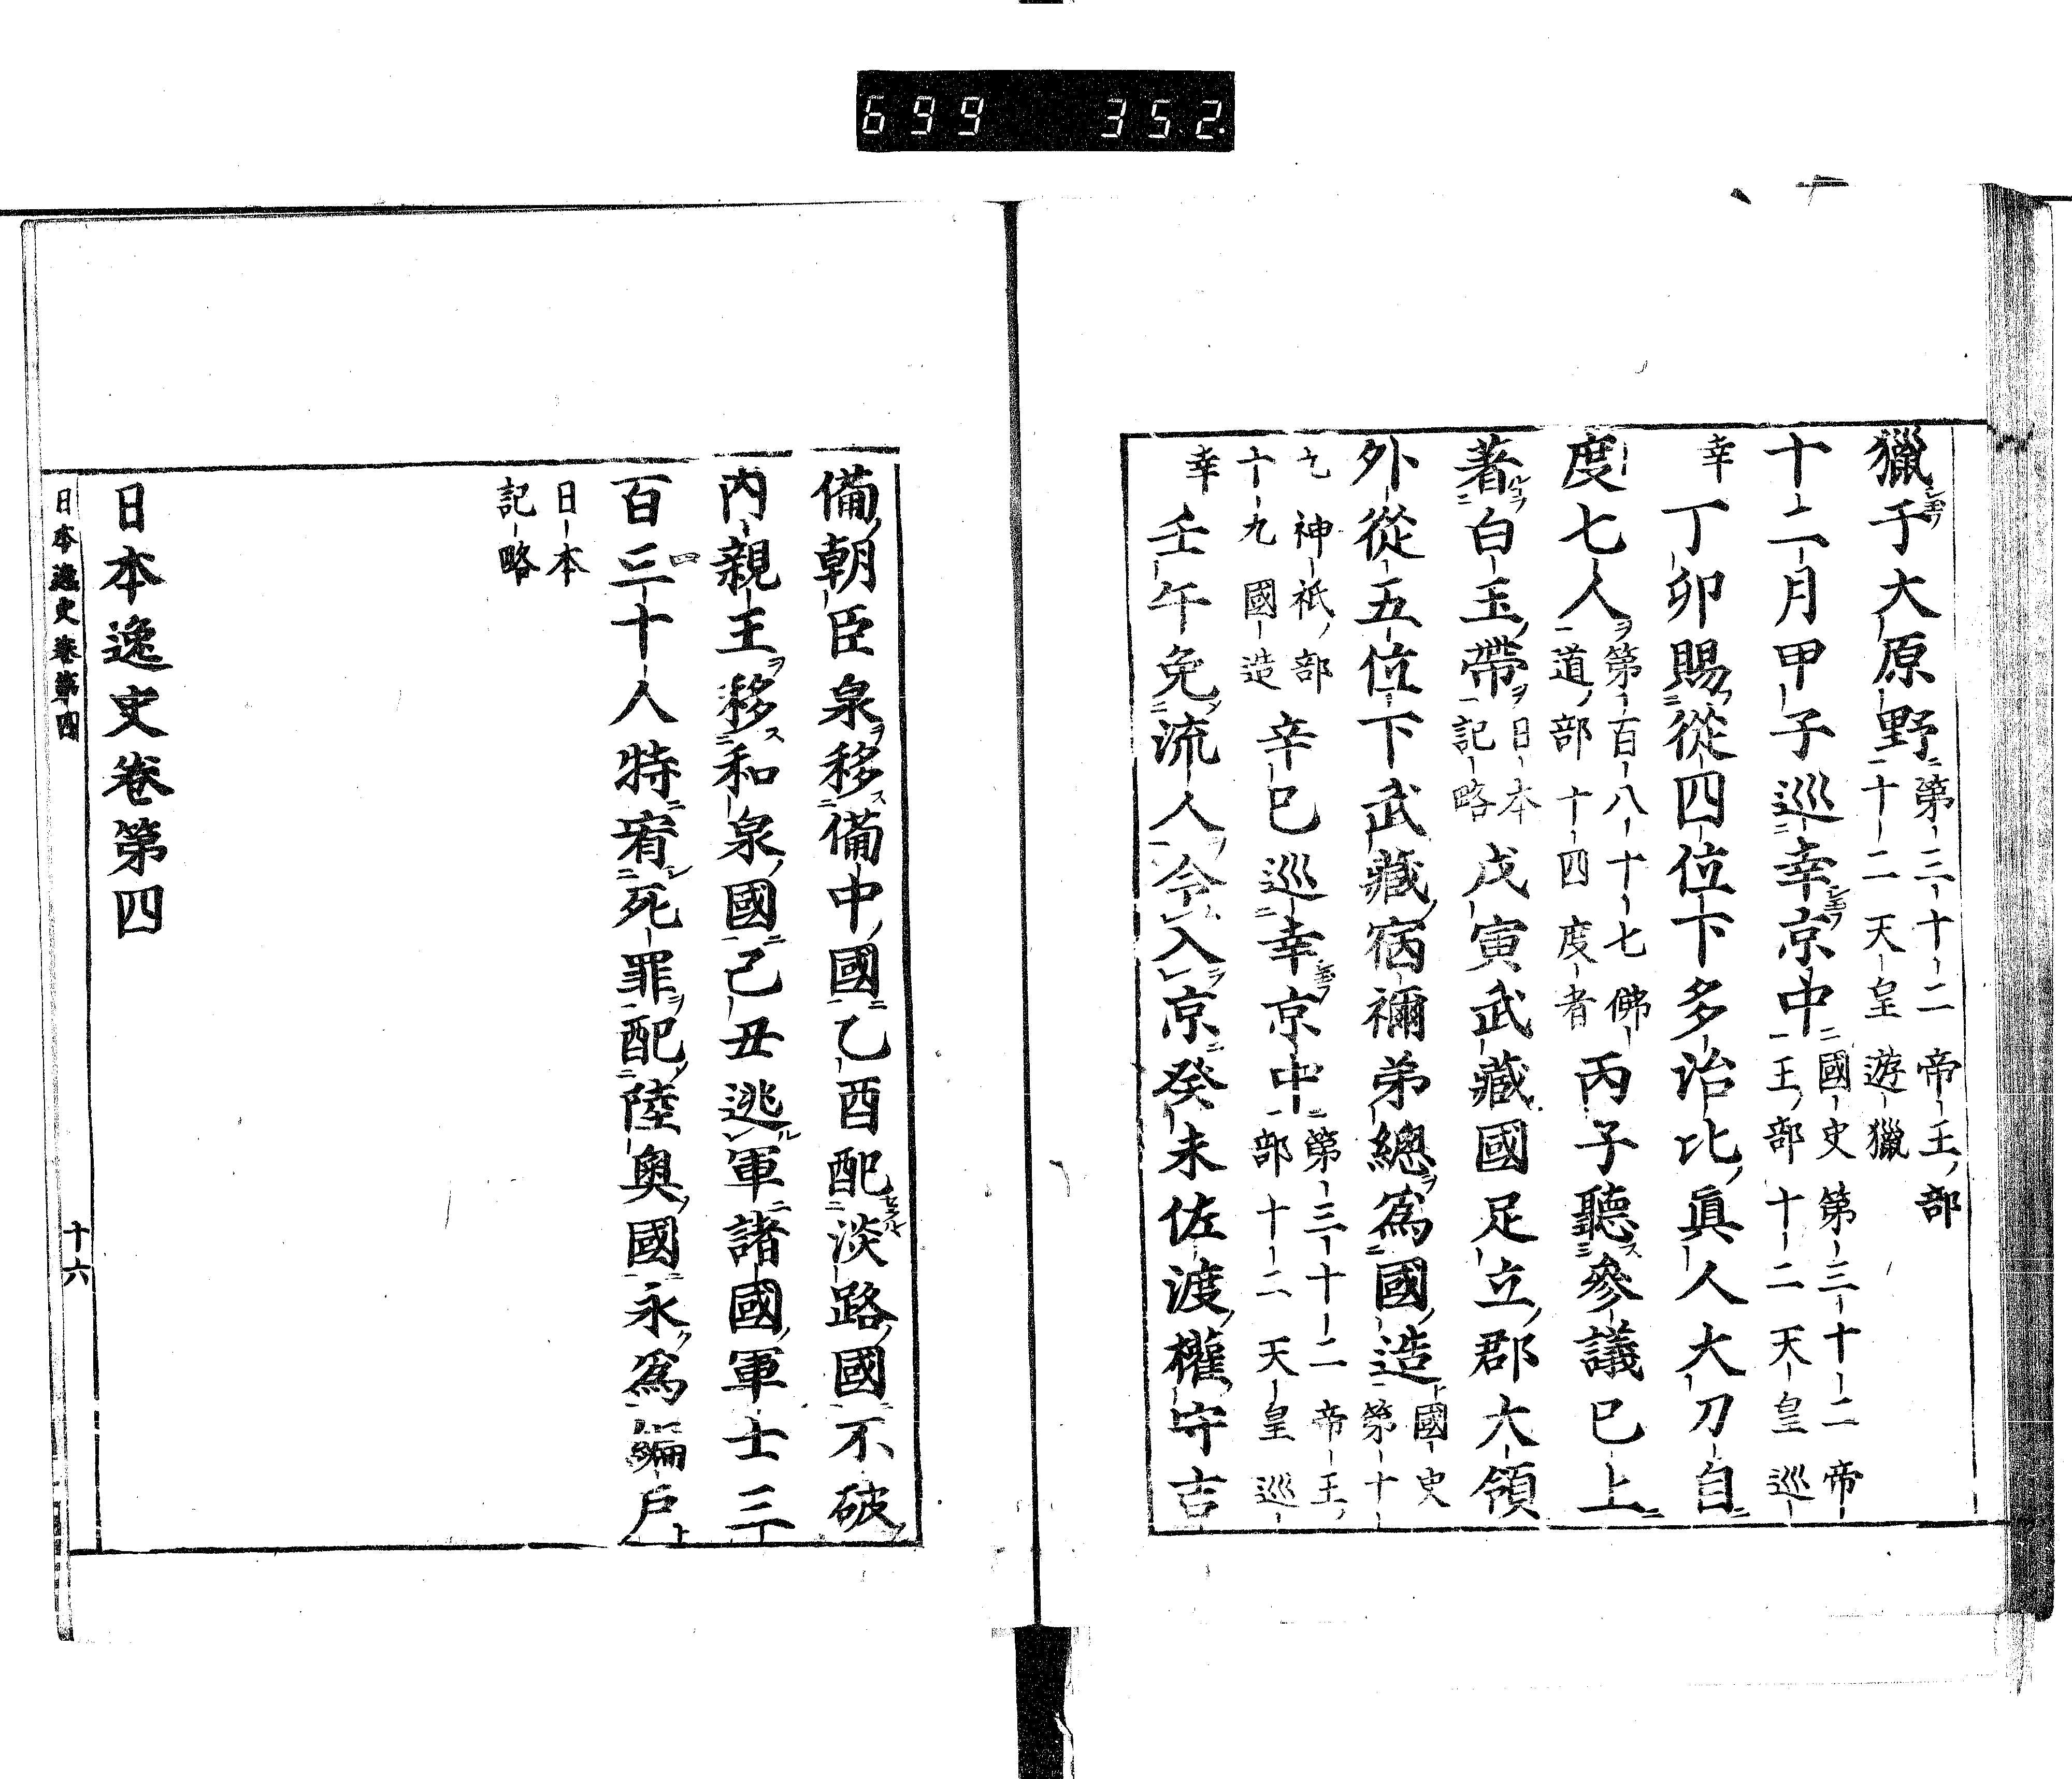 699 352
獵于大原野第三十二帝王部十二天皇遊獵
十二月甲子巡幸京中國史第三十二帝王部十二天皇巡
幸丁卯賜從四位下多治比眞人大刀自
度七人第百八十七佛道部十四度者丙子聽參議已上
著白玉帶日本記略戊寅武藏國足立郡大領
外從五位下武藏宿禰弟總爲國造國史第十
七神祇部十九國造辛巳巡幸京中第三十二帝王部十二天皇巡
幸壬午免流人令入京癸未佐渡權守吉
備朝臣泉移備中國乙酉配淡路國不破
内親王移和泉國己丑逃軍諸國軍士三
百三十人特宥死罪配陸奧國永爲編戸
日本記略
日本逸史卷第四
日本逸史卷第四 十六